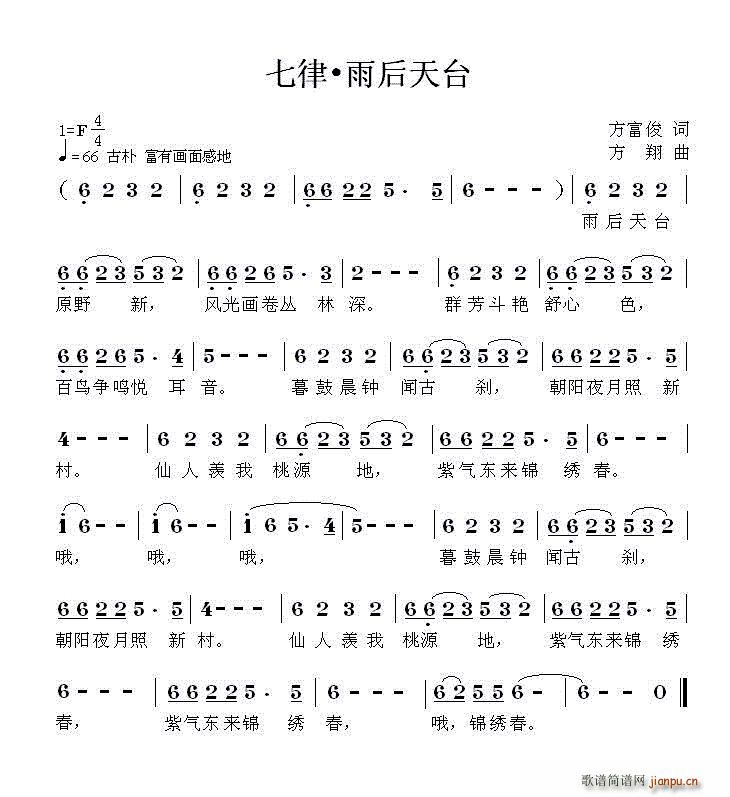 七律•雨后天台
1=F 4/4
方富俊 词
♩=66 古朴 富有画面感地
方 翔 曲
( 6 2 3 2 | 6 2 3 2 | 6 6 2 2 5 · 5 | 6 - - - ) | 6 2 3 2 |
雨后天台
6 6 2 3 5 3 2 | 6 6 2 6 5 · 3 | 2 - - - | 6 2 3 2 | 6 6 2 3 5 3 2 |
原野 新， 风光画卷丛 林 深。 群芳斗艳 舒心 色，
6 6 2 6 5 · 4 | 5 - - - | 6 2 3 2 | 6 6 2 3 5 3 2 | 6 6 2 2 5 · 5 |
百鸟争鸣悦 耳 音。 暮鼓晨钟 闻古 刹， 朝阳夜月照 新
4 - - - | 6 2 3 2 | 6 6 2 3 5 3 2 | 6 6 2 2 5 · 5 | 6 - - - |
村。 仙人羡我 桃源 地， 紫气东来锦 绣春。
i 6 - - | i 6 - - | i 6 5 · 4 | 5 - - - | 6 2 3 2 | 6 6 2 3 5 3 2 |
哦， 哦， 哦， 暮鼓晨钟 闻古 刹，
6 6 2 2 5 · 5 | 4 - - - | 6 2 3 2 | 6 6 2 3 5 3 2 | 6 6 2 2 5 · 5 |
朝阳夜月照 新 村。 仙人羡我 桃源 地， 紫气东来锦 绣
6 - - - | 6 6 2 2 5 · 5 | 6 - - - | 6 2 5 5 6 - - | 6 - - 0 ‖
春， 紫气东来锦 绣 春， 哦，锦绣春。
歌谱简谱网 jianpu.cn